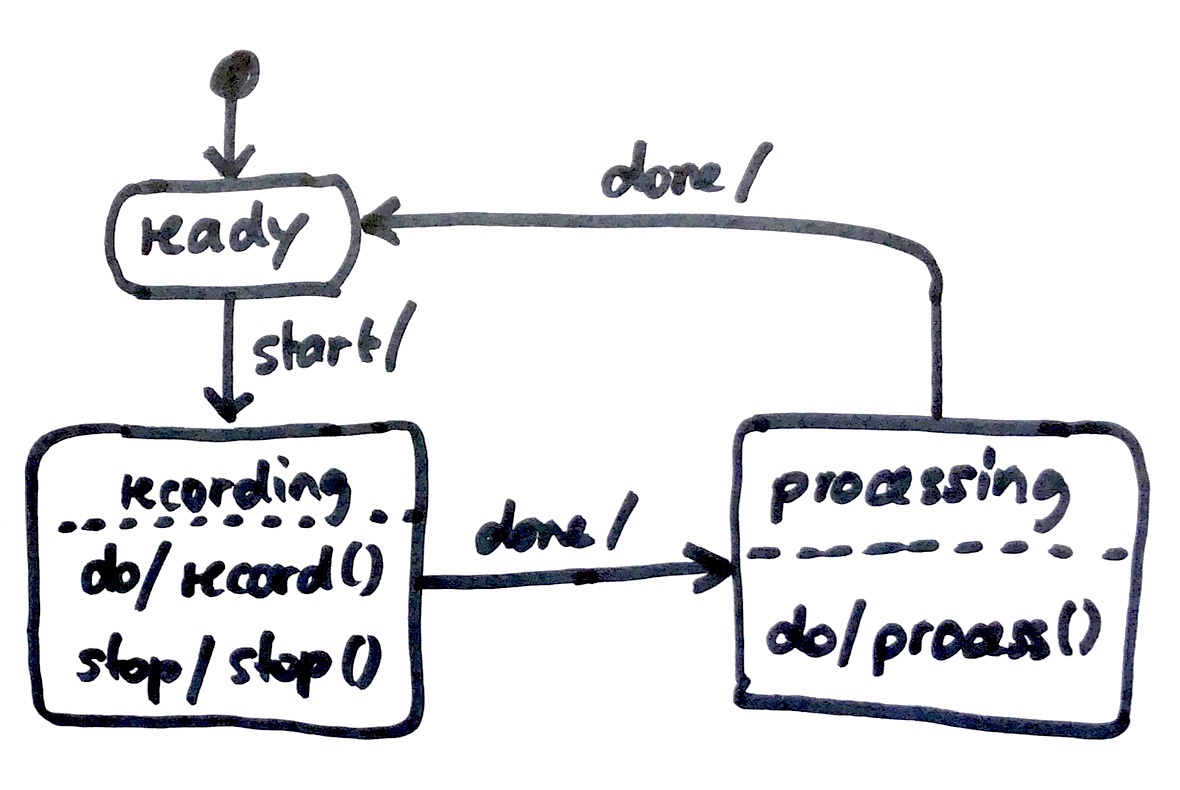 done/
ready
start/
recording
do/record()
stop/stop()
done/
processing
do/process()